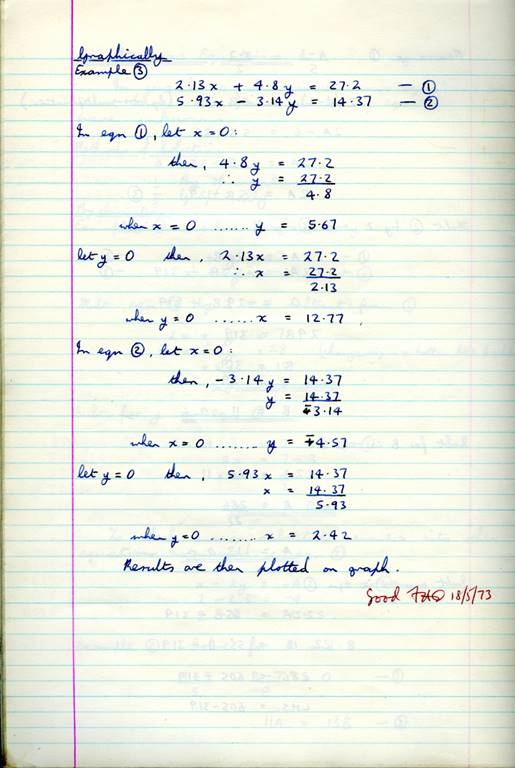 Graphically
Example ③
2·13x + 4·8y = 27·2 — ①
5·93x − 3·14y = 14·37 — ②
In eqn ①, let x=0:
then, 4·8y = 27·2
∴ y = 27·2
4·8
when x = 0 ...... y = 5·67
let y=0 then, 2·13x = 27·2
∴ x = 27·2
2·13
when y=0 ...... x = 12·77
In eqn ②, let x=0:
then, −3·14y = 14·37
y = 14·37
−3·14
when x=0 ....... y = −4·57
let y=0 then, 5·93x = 14·37
x = 14·37
5·93
when y=0 ........ x = 2·42
Results are then plotted on graph.
Good 18/5/73